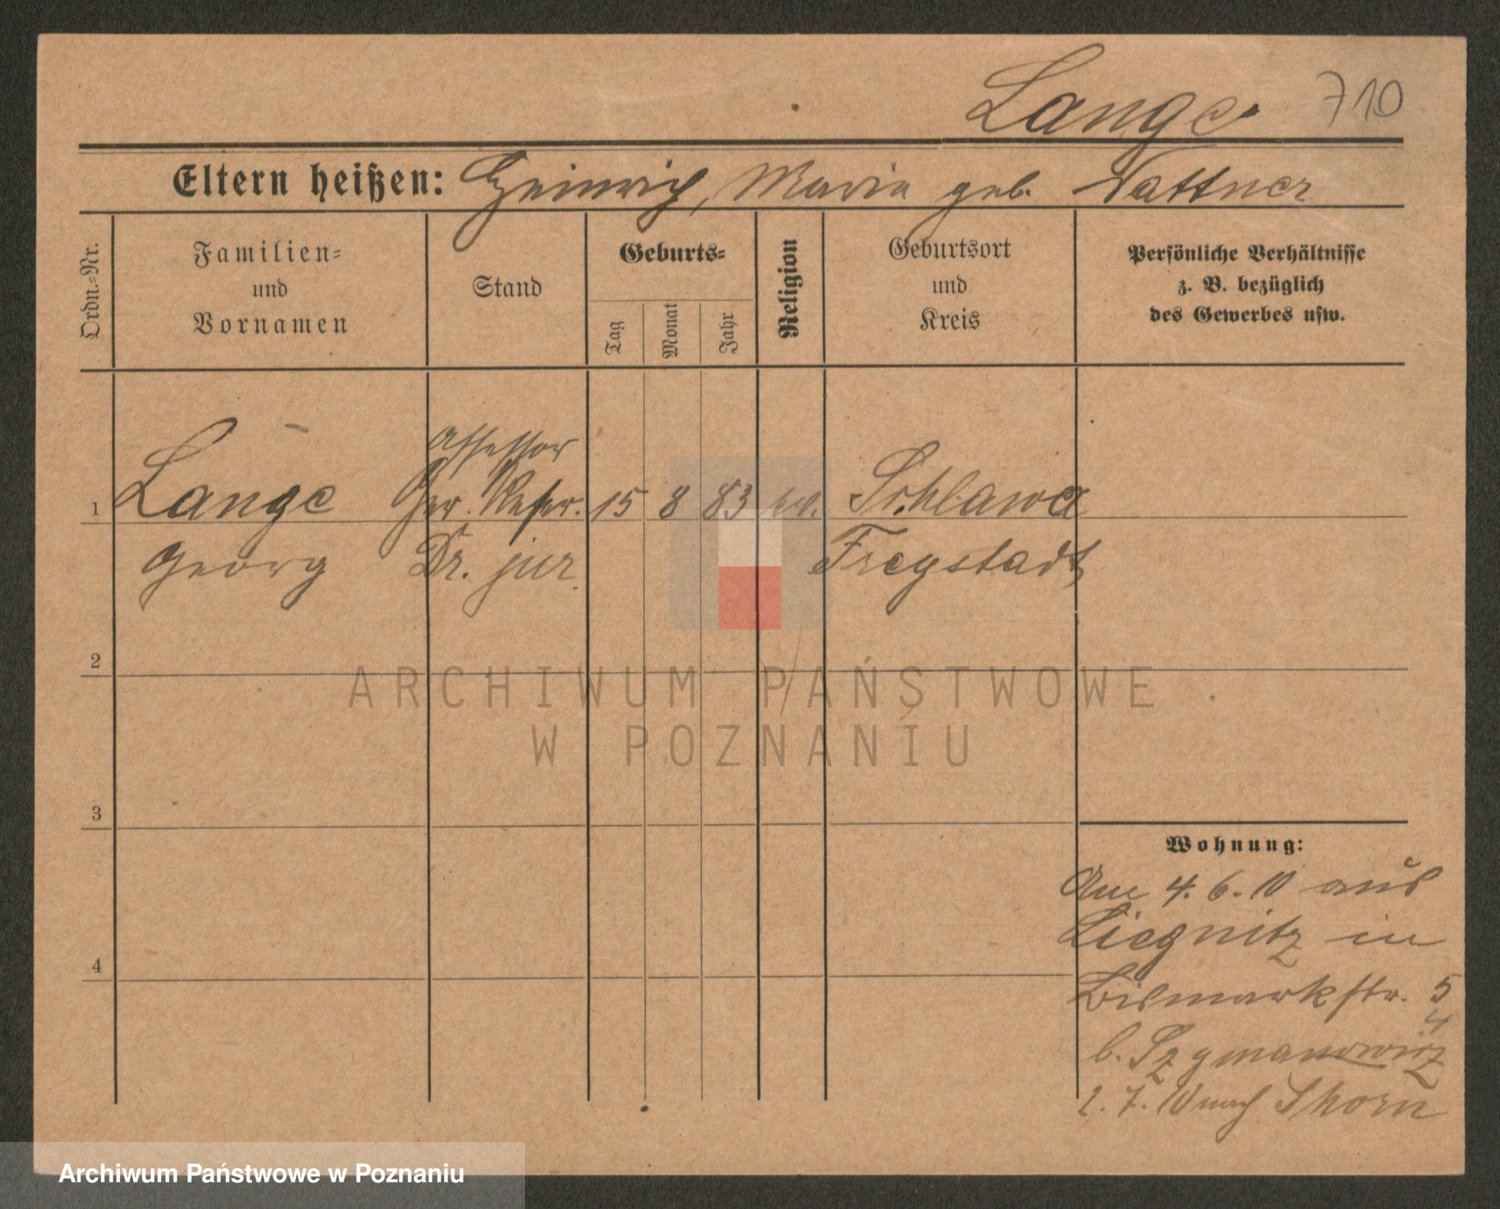 Lange 710
Eltern heißen: Heinrich, Maria geb. Nattner
Ordn.=Nr.
Familien=
und
Vornamen
Stand
Geburts=
Tag
Monat
Jahr
Religion
Geburtsort
und
Kreis
Persönliche Verhältnisse
z. B. bezüglich
des Gewerbes usw.
Assessor
1 Lange Ger. Refer. 15 8 83 ev. Schlawa
Georg Dr. jur. Freystadt
2
ARCHIWUM PAŃSTWOWE
W POZNANIU
3
Wohnung:
Am 4.6.10 aus
Liegnitz in
4
Bismarkstr. 5
4
b. Szymanowicz
2.7.10 nach Thorn
Archiwum Państwowe w Poznaniu